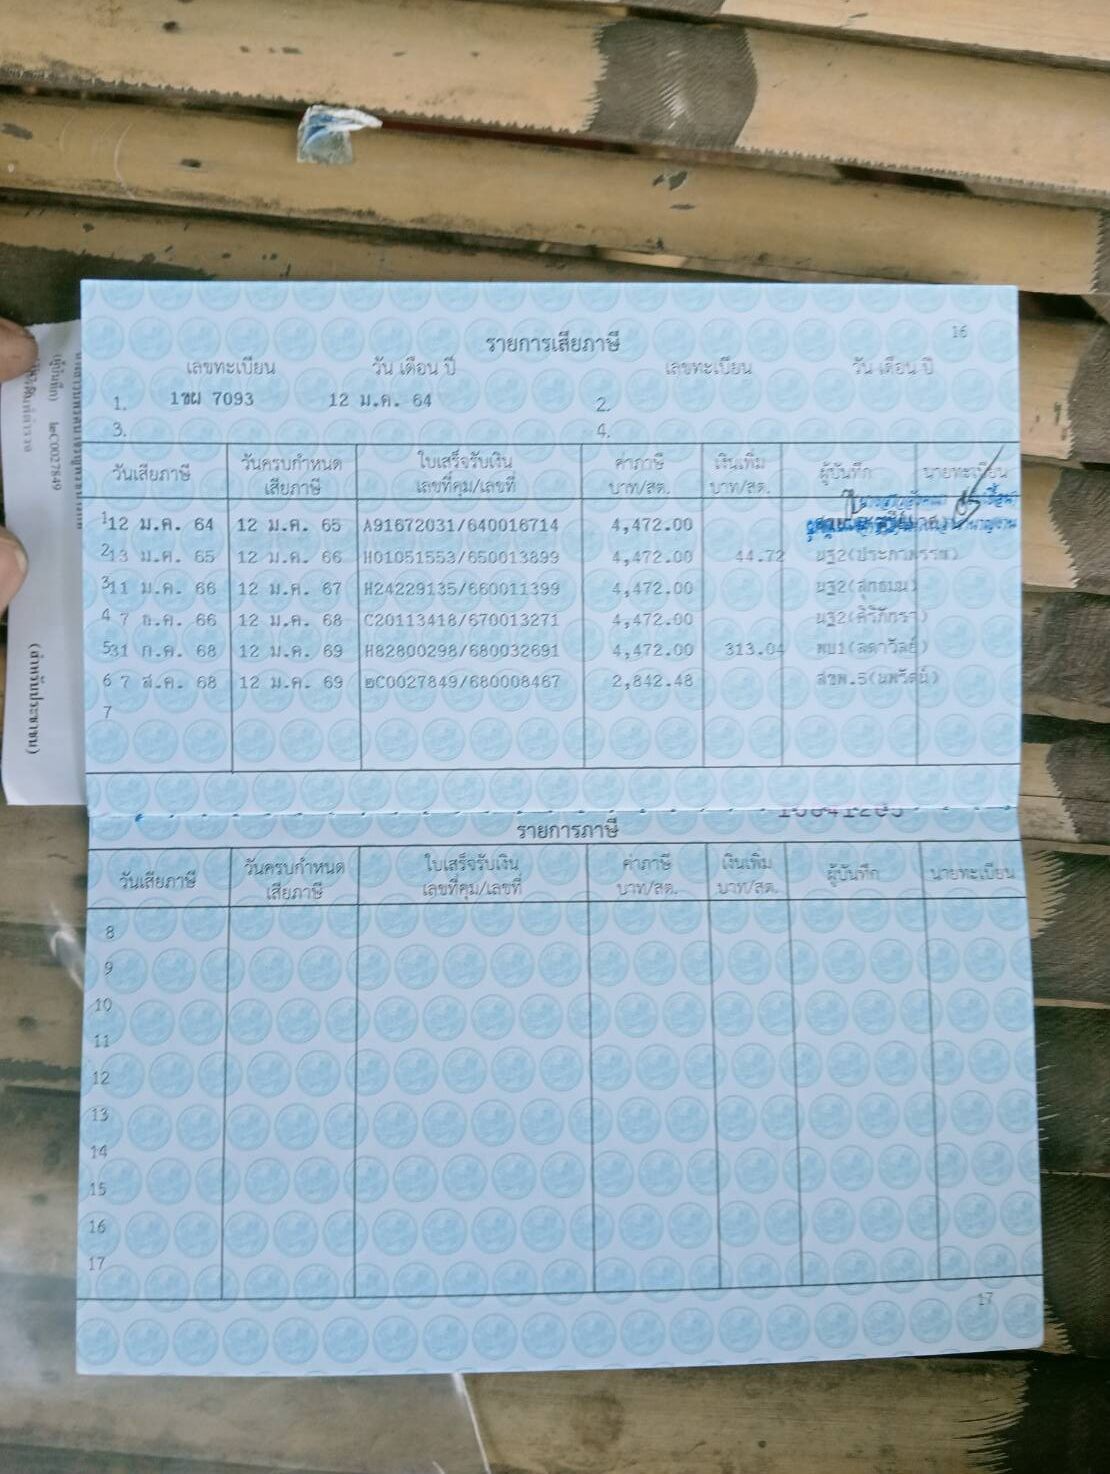 16
รายการเสียภาษี
เลขทะเบียน วัน เดือน ปี เลขทะเบียน วัน เดือน ปี
1. 1ขผ 7093 12 ม.ค. 64 2.
3. 4.
วันเสียภาษี วันครบกำหนดเสียภาษี ใบเสร็จรับเงิน เลขที่คุม/เลขที่ ค่าภาษี บาท/สต. เงินเพิ่ม บาท/สต. ผู้บันทึก นายทะเบียน
1 12 ม.ค. 64 12 ม.ค. 65 A91672031/640016714 4,472.00
2 13 ม.ค. 65 12 ม.ค. 66 H01051553/650013899 4,472.00 44.72 นฐ2(ประภาพรรณ)
3 11 ม.ค. 66 12 ม.ค. 67 H24229135/660011399 4,472.00 นฐ2(สุกธเนม)
4 7 ธ.ค. 66 12 ม.ค. 68 C20113418/670013271 4,472.00
5 31 ก.ค. 68 12 ม.ค. 69 H82800298/680032691 4,472.00 313.04 พบ1(ลดาวัลย์)
6 7 ส.ค. 68 12 ม.ค. 69 ๒C0027849/680008467 2,842.48 สขพ.5(นพรัตน์)
7
รายการภาษี
วันเสียภาษี วันครบกำหนดเสียภาษี ใบเสร็จรับเงิน เลขที่คุม/เลขที่ ค่าภาษี บาท/สต. เงินเพิ่ม บาท/สต. ผู้บันทึก นายทะเบียน
8
9
10
11
12
13
14
15
16
17
17
๒C0027849
(สำหรับประชาชน)